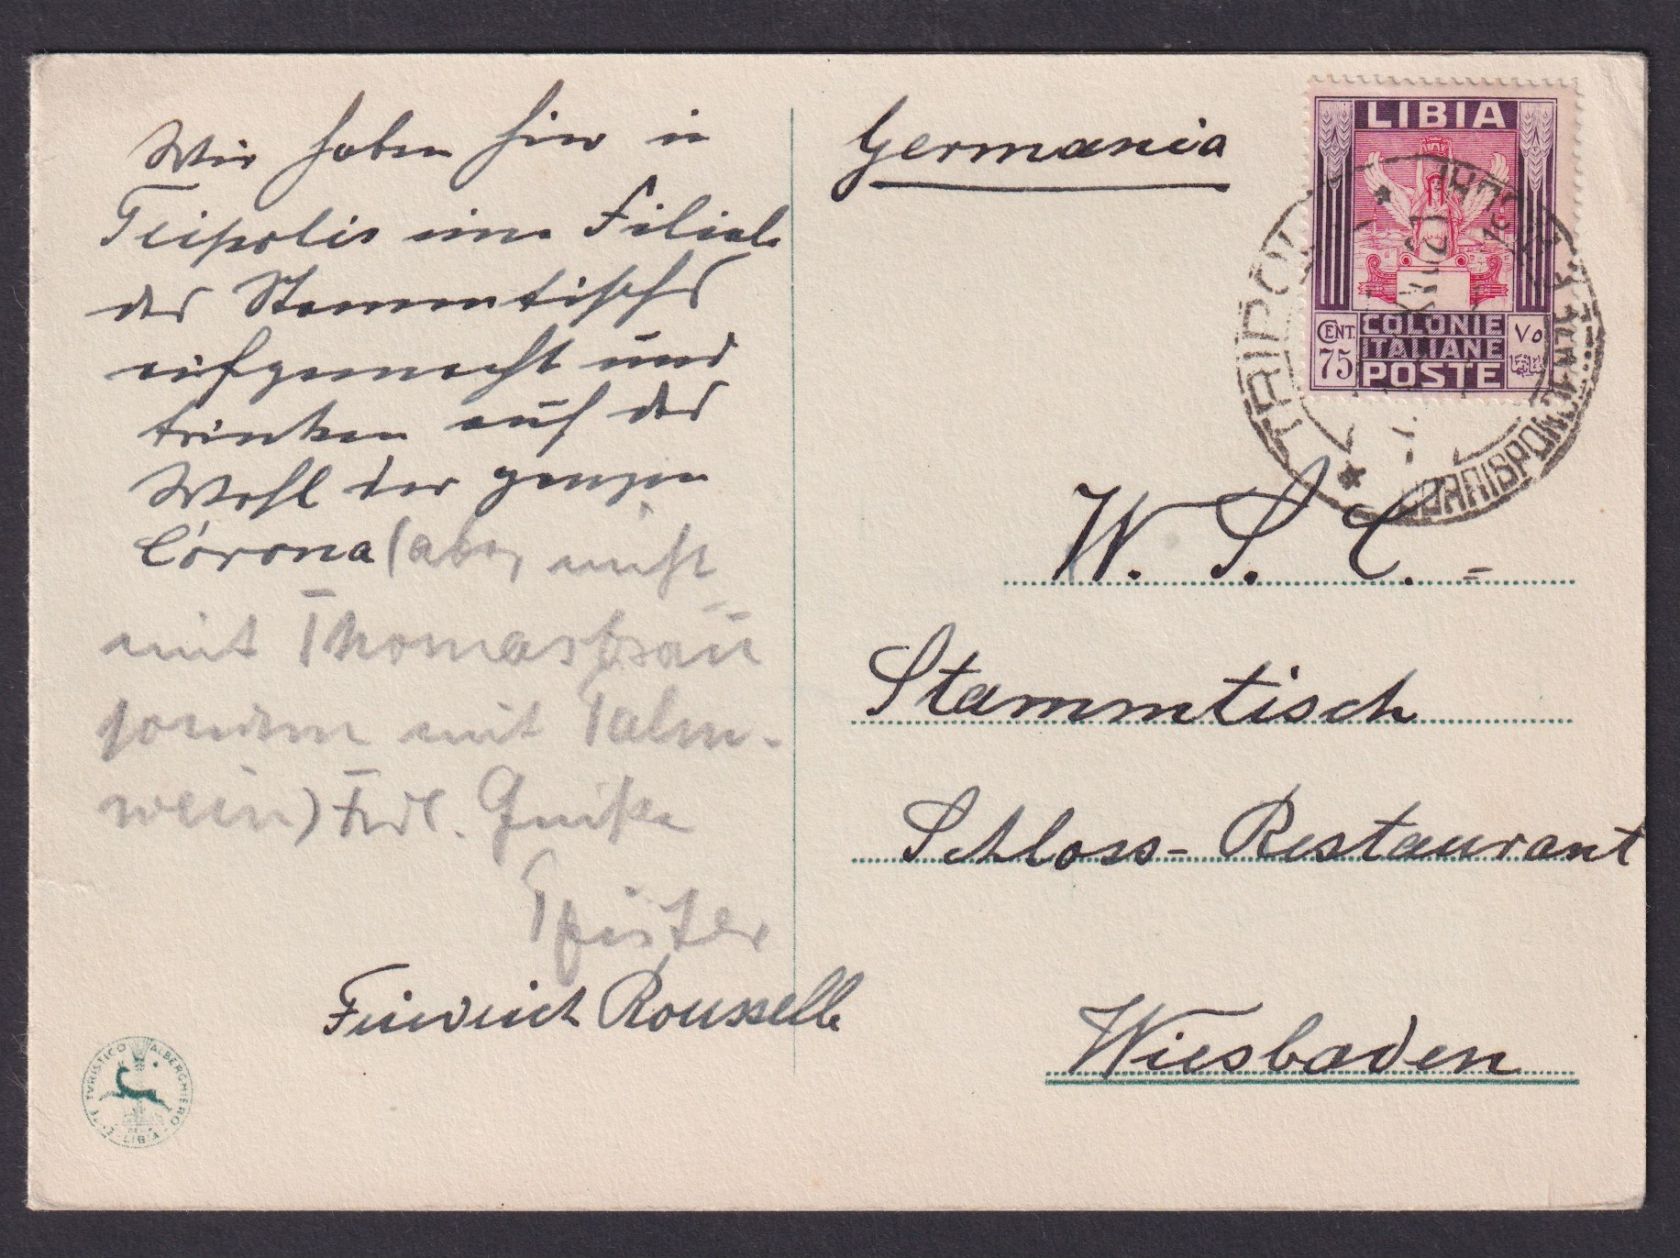 Wir haben hier in
Tripolis eine Filiale
des Stammtisches
aufgemacht und
trinken auf das
Wohl der ganzen
Corona (aber nicht
mit Thomasbräu
sondern mit Palm-
wein) Frdl. Grüße
Pfister
Friedrich Rousselle
E.T. TVRISTICO ALBERGHIERO
LIBIA
Germania
LIBIA
CENT. 75
COLONIE
ITALIANE
POSTE
٧٥
TRIPOLI
CORRISPON
W. S. C. -
Stammtisch
Schloss-Restaurant
Wiesbaden